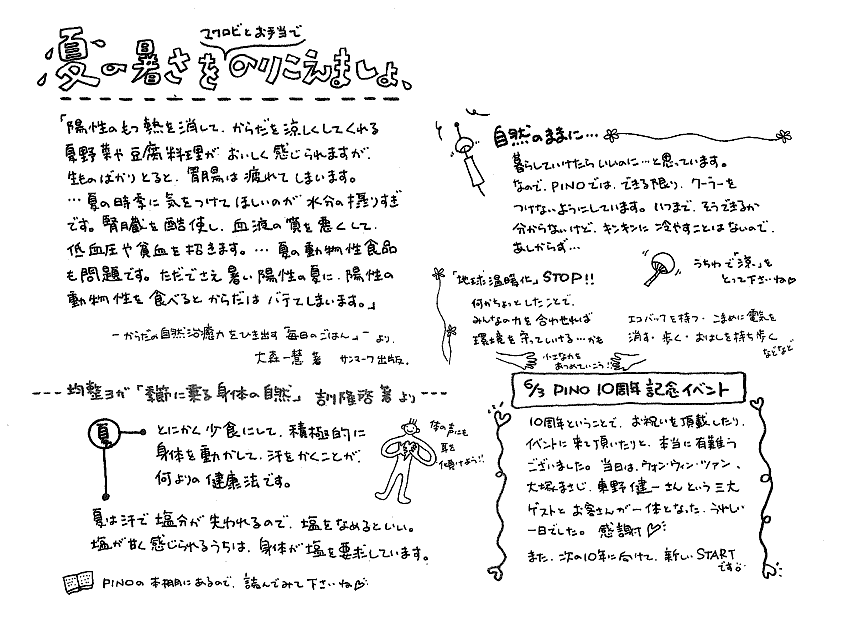 マクロビとお手当で
夏の暑さをのりこえましょ、
「陽性のもつ熱を消して、からだを涼しくしてくれる
夏野菜や豆腐料理が おいしく感じられますが、
生ものばかりとると、胃腸は疲れてしまいます。
…夏の時季に気をつけてほしいのが 水分の摂りすぎ
です。腎臓を酷使し、血液の質を悪くして、
低血圧や貧血を招きます。… 夏の動物性食品
も問題です。ただでさえ暑い陽性の夏に、陽性の
動物性を食べるとからだはバテてしまいます。」
-からだの自然治癒力をひき出す「毎日のごはん」- より、
大森一慧 著 サンマーク出版.
---均整ヨガ「季節に乗る身体の自然」 著より---
夏
とにかく少食にして、積極的に
身体を動かして、汗をかくことが、
何よりの健康法です。
体の声にも
耳を
傾けよう!!
夏は汗で塩分が失われるので、塩をなめるといい。
塩が甘く感じられるうちは、身体が塩を要求しています。
PINOの本棚にあるので、読んでみて下さいね♡
自然のままに…
暮らしていけたらいいのに…と思っています。
なので、PINOでは、できる限り、クーラーを
つけないようにしています。いつまで、そうできるか
分からないけど、キンキンに冷やすことはないので、
あしからず…
うちわで「涼」を
とって下さいね♡
「地球温暖化」STOP!!
何かちょっとしたことで、
みんなの力を合わせれば
環境を守っていける…かも
エコバックを持つ・こまめに電気を
消す・歩く・おはしを持ち歩く
などなど
小さな力を
あつめていこう!
6/3 PINO 10周年記念イベント
10周年ということで、お祝いを頂戴したり、
イベントに来て頂いたりと、本当に有難う
ございました。当日は、ウォン・ウィン・ツァン、
大塚まさじ、東野健一さんという三大
ゲストとお客さんが一体となった、うれしい
一日でした。感謝♡
また、次の10年に向けて、新しいSTART
です